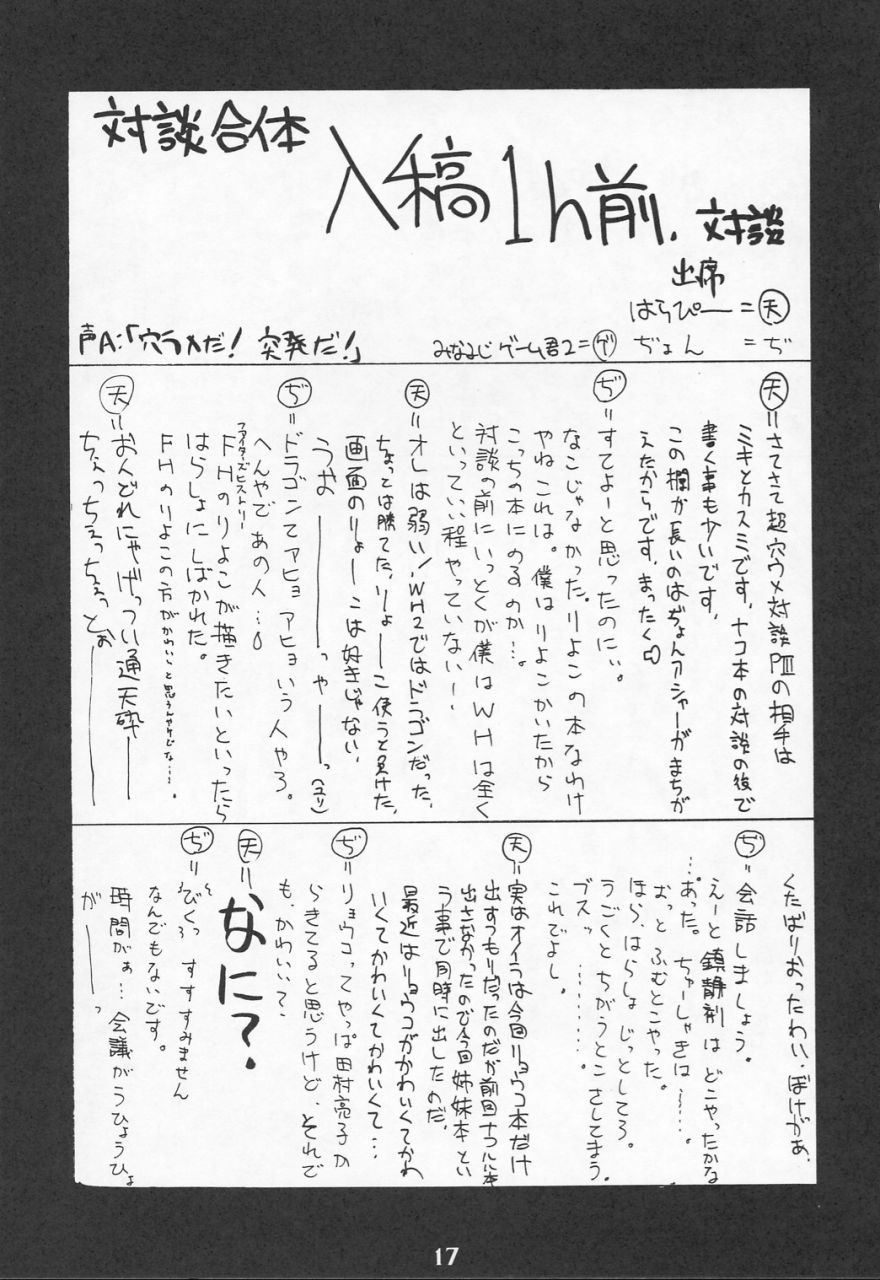 対談合体
入稿1h前.対談
出席
はらぴー=天
みなみじゲーム君2=ゲ ぢょん =ぢ
声A:「穴ラメだ! 突発だ!」
天=さてさて超穴ウメ対談PⅢの相手は
ミキとカスミです、ナコ本の対談の後で
書く事も少いです、
この欄が長いのはぢょんアシャーがまちが
えたからです、まったく
ぢ=すてよーと思ったのに、、
なこじゃなかった、りよこの本なわけ
やねこれは。僕はりよこかいたから
こっちの本にのるのか…。
対談の前にいっとくが僕はWHは全く
といっていい程やっていないー、
天=オレは弱い!、WH2ではドラゴンだった、
ちょっとは勝てた、りょーこ使うと負けた、
画面のりょーこは好きじゃない、
うおーーっやーーっ(ユリ)
ぢ=ドラゴンてアヒョアヒョいう人やろ。
へんやであの人…。
ファイターズヒストリー
FHのりよこが描きたいといったら
はらしょにしばかれた。
FHのりよこの方がかわいいと思うんやけどな…。
天=おんどれにゃげっつい通天砕ーー
ちぇっちぇっちぇっとぉーー
くたばりおったわい、ぼけがぁ、
ぢ=会話しましょう。
えーと鎮静剤はどこやったかな
…あった。ちゅーしゃきは……。
おっとふむとこやった。
ほら、はらしょじっとしてろ。
うごくとちがうとこさしてまう。
ブスッ………。
これでよし。
天=実はオイラは今回リョウコ本だけ
出すつもりだったのだが前回ナコルル本
出さなかったので今回姉妹本とい
う事で同時に出したのだ、
最近はリョウコがかわいくてかわ
いくてかわいくてかわいくて…
ぢ=リョウコってやっぱ田村亮子か
らきてると思うけど、それで
も、かわいい?、
天=なに?.
ぢ=びくっ すすすみません
なんでもないです。
時間がぁ…会議がうひょうひょ
がーーっ
17